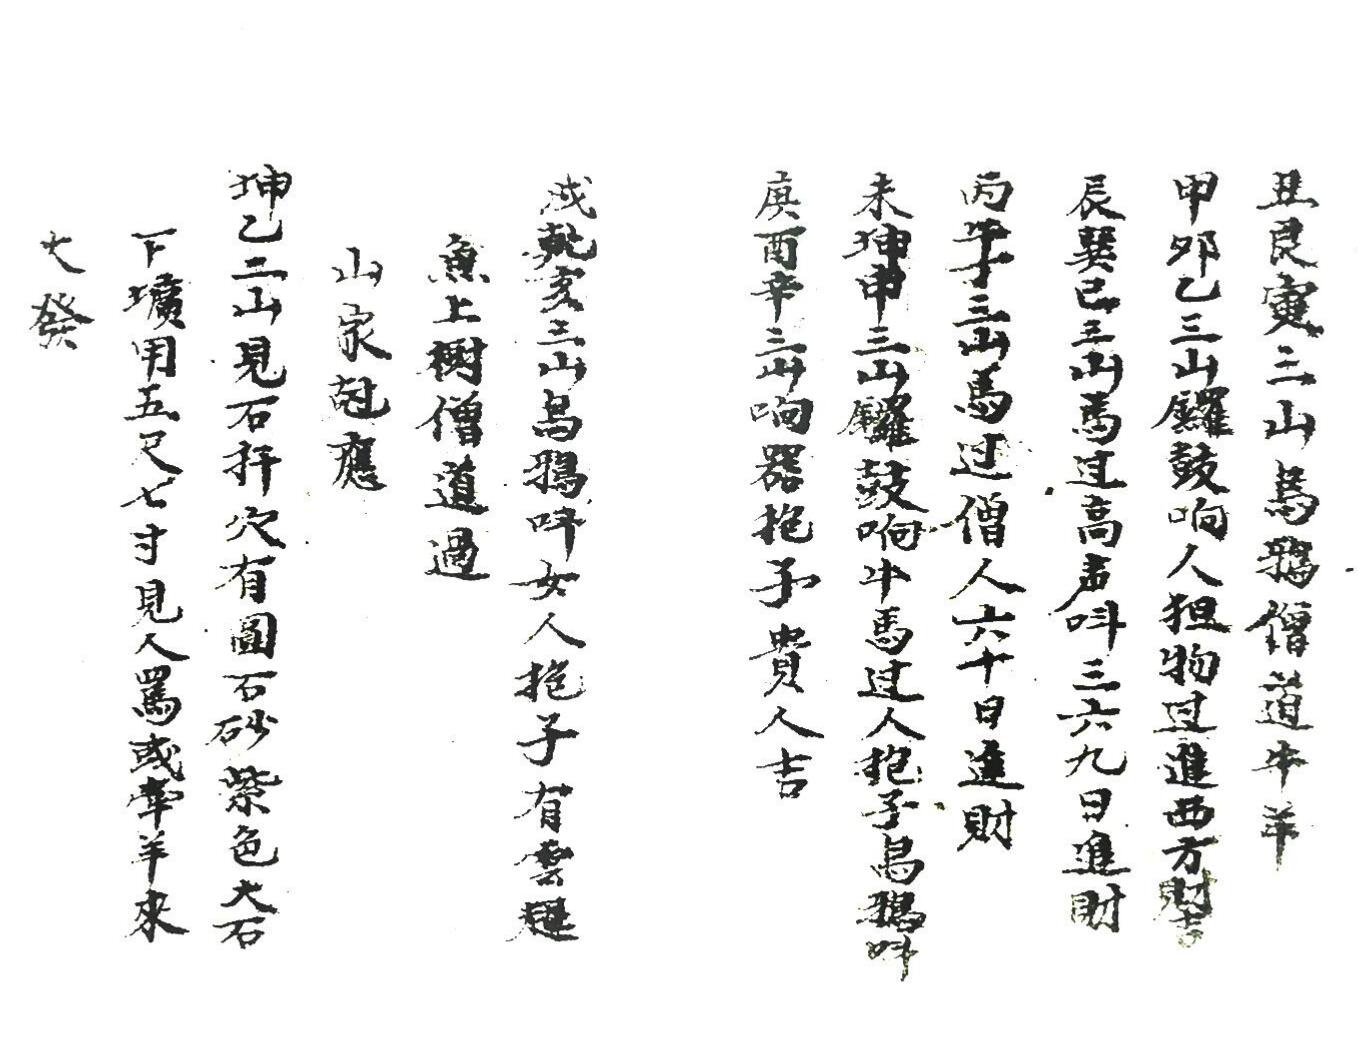 丑艮寅三山烏鴉僧道牛羊
甲卯乙三山鑼鼓响人担物过進西方財吉
辰巽巳三山馬过高声叫三六九日進財
丙午丁三山馬过僧人六十日進財
未坤申三山鑼鼓响牛馬过人抱子烏鴉叫
庚酉辛三山响器抱子貴人吉
戌乾亥三山烏鴉叫女人抱子有雲
魚上樹僧道過
山家尅應
坤乙二山見石扦穴有圓石砂紫色大石
下壙用五尺七寸見人罵或牽羊來
大發